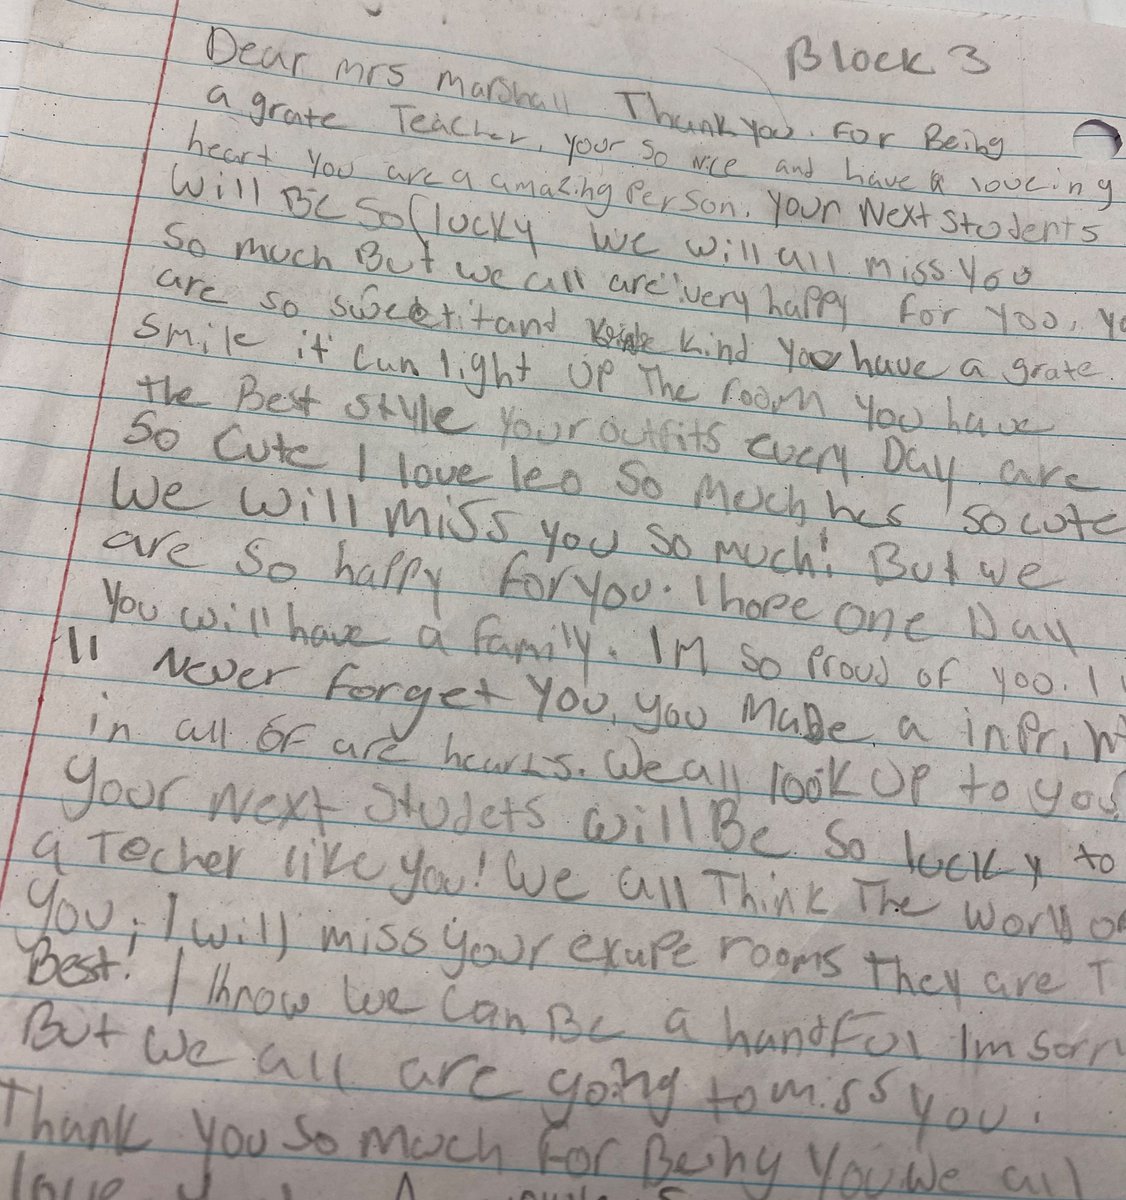 Block 3
Dear mrs marshall Thank you. For Being
a grate Teacher, your so nice and have a loveing
heart you are a amazing Person. your Next Students
will BE So lucky we will all miss you
So much But we all are very happy for yoo, yo
are so sweet and kind you have a grate
smile it can light UP The room you have
the Best style your outfits every Day are
So Cute I love leo So much hes so cute
We will miss you so much! But we
are so happy for you. I hope one Day
you will have a family. Im so Proud of yoo. I
ll Never forget you, you MaDe a inPrint
in all oF are hearts. We all look UP to you
your Next Studets will Be so lucky to
a Techer like you! We all Think The World of
you, I will miss your excape rooms they are T
Best! I know we can Be a handFul Im sorry
But we all are going to miss you.
Thank you so much for Being you we all
love